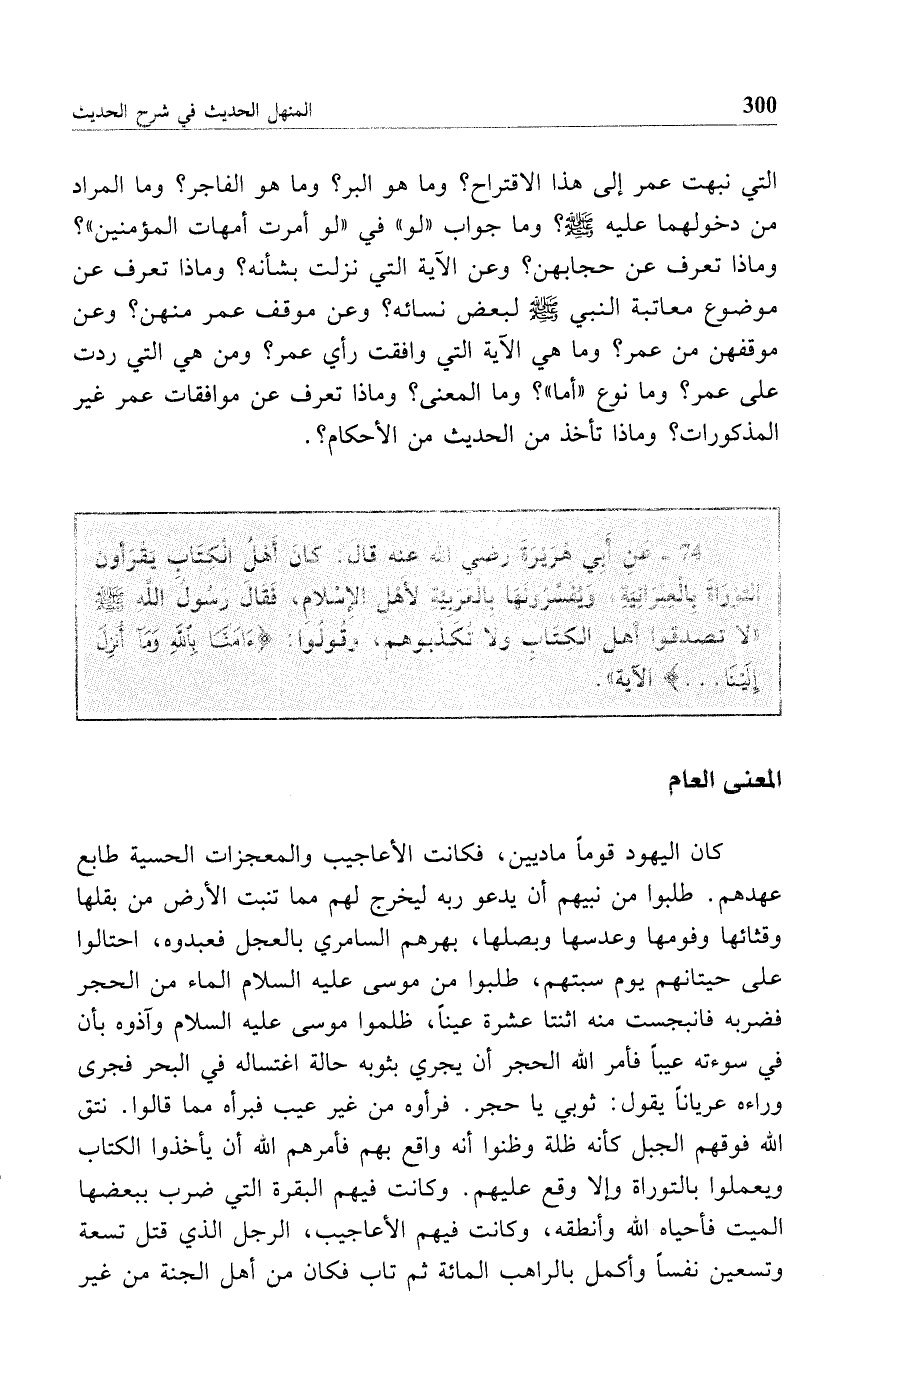 300
المنهل الحديث في شرح الحديث
التي نبهت عمر إلى هذا الاقتراح؟ وما هو البر؟ وما هو الفاجر؟ وما المراد
من دخولهما عليه ﷺ؟ وما جواب «لو» في «لو أمرت أمهات المؤمنين»؟
وماذا تعرف عن حجابهن؟ وعن الآية التي نزلت بشأنه؟ وماذا تعرف عن
موضوع معاتبة النبي ﷺ لبعض نسائه؟ وعن موقف عمر منهن؟ وعن
موقفهن من عمر؟ وما هي الآية التي وافقت رأي عمر؟ ومن هي التي ردت
على عمر؟ وما نوع «أما»؟ وما المعنى؟ وماذا تعرف عن موافقات عمر غير
المذكورات؟ وماذا تأخذ من الحديث من الأحكام؟.
74 ـ عَنِ أَبِي هُرَيْرَةَ رضي الله عنه قَالَ: كَانَ أَهْلُ الْكِتَابِ يَقْرَأُون
التَّوْرَاةَ بِالْعِبْرَانِيَّةِ، وَيُفَسِّرُونَهَا بِالْعَرَبِيَّةِ لأهْلِ الإسْلَامِ، فَقَالَ رَسُولُ اللَّهِ ﷺ
«لا تصدقوا أهل الكتاب ولا تكذبوهم، وقُولُوا: ﴿ءَامَنَّا بِٱللَّهِ وَمَآ أُنزِلَ
إِلَيْنَا...﴾ الآية».
المعنى العام
كان اليهود قوماً ماديين، فكانت الأعاجيب والمعجزات الحسية طابع
عهدهم. طلبوا من نبيهم أن يدعو ربه ليخرج لهم مما تنبت الأرض من بقلها
وقثائها وفومها وعدسها وبصلها، بهرهم السامري بالعجل فعبدوه، احتالوا
على حيتانهم يوم سبتهم، طلبوا من موسى عليه السلام الماء من الحجر
فضربه فانبجست منه اثنتا عشرة عيناً، ظلموا موسى عليه السلام وآذوه بأن
في سوءته عيباً فأمر الله الحجر أن يجري بثوبه حالة اغتساله في البحر فجرى
وراءه عرياناً يقول: ثوبي يا حجر. فرأوه من غير عيب فبرأه مما قالوا. نتق
الله فوقهم الجبل كأنه ظلة وظنوا أنه واقع بهم فأمرهم الله أن يأخذوا الكتاب
ويعملوا بالتوراة وإلا وقع عليهم. وكانت فيهم البقرة التي ضرب ببعضها
الميت فأحياه الله وأنطقه، وكانت فيهم الأعاجيب، الرجل الذي قتل تسعة
وتسعين نفساً وأكمل بالراهب المائة ثم تاب فكان من أهل الجنة من غير